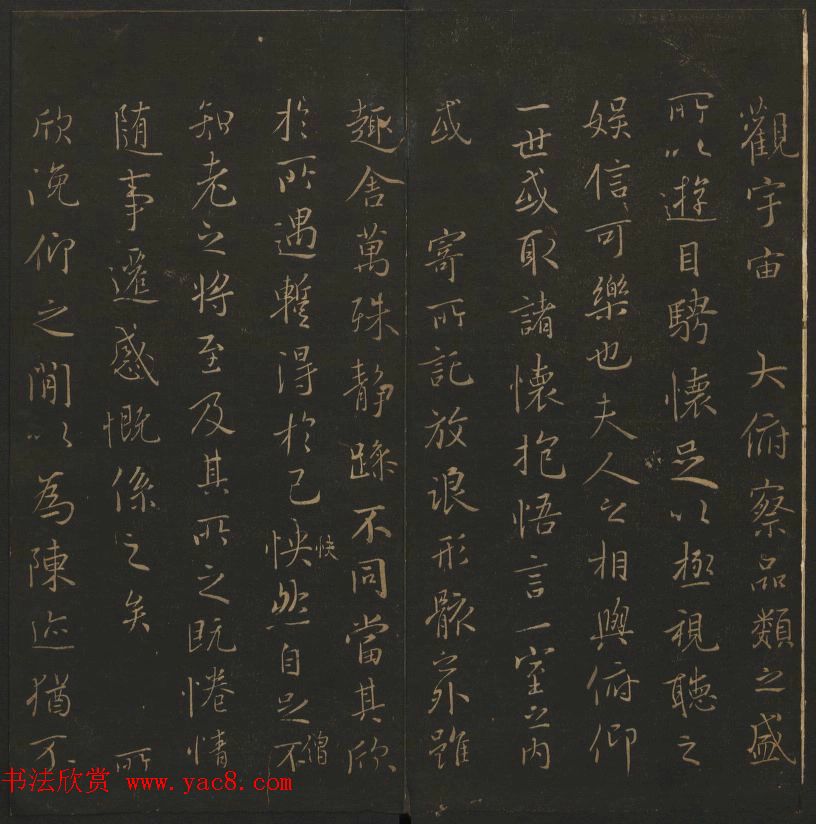 觀宇宙 大俯察品類之盛
所以遊目騁懷足以極視聽之
娛信可樂也夫人之相與俯仰
一世或取諸懷抱悟言一室之内
或 寄所託放浪形骸之外雖
趣舍萬殊静躁不同當其欣
快
於所遇蹔得於己怏然自足不
僧
知老之將至及其所之既惓情
随事遷感慨係之矣 所
欣俛仰之間以為陳迹猶不
书法欣赏 www.yac8.com